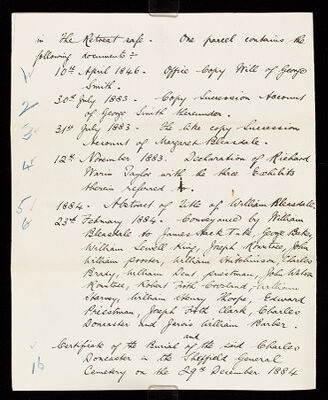 in The Retreat safe. One parcel contains the
following documents:-
1 10th April 1846. Office Copy Will of George
Smith.
2 30th July 1883. Copy Succession Account
of George Smith thereunder.
3 31st July 1883. The like copy Succession
Account of Margaret Bleasdale.
4 12th November 1883. Declaration of Richard
Warin Taylor with the three Exhibits
therein referred to.
5 1884. Abstract of title of William Bleasdale.
6 23rd February 1884. Conveyance by William
Bleasdale to James Hack Tuke, George Baker,
William Sewell King, Joseph Rowntree, John
William Procter, William Hutchinson, Charles
Brady, William Dent Priestman, John Watson
Rowntree, Robert Firth Crosland, William
Harvey, William Henry Thorpe, Edward
Priestman, Joseph Firth Clark, Charles
Doncaster and Jarvis William Barber.
and
16 Certificate of the Burial of the said Charles
Doncaster in the Sheffield General
Cemetery on the 29th December 1884